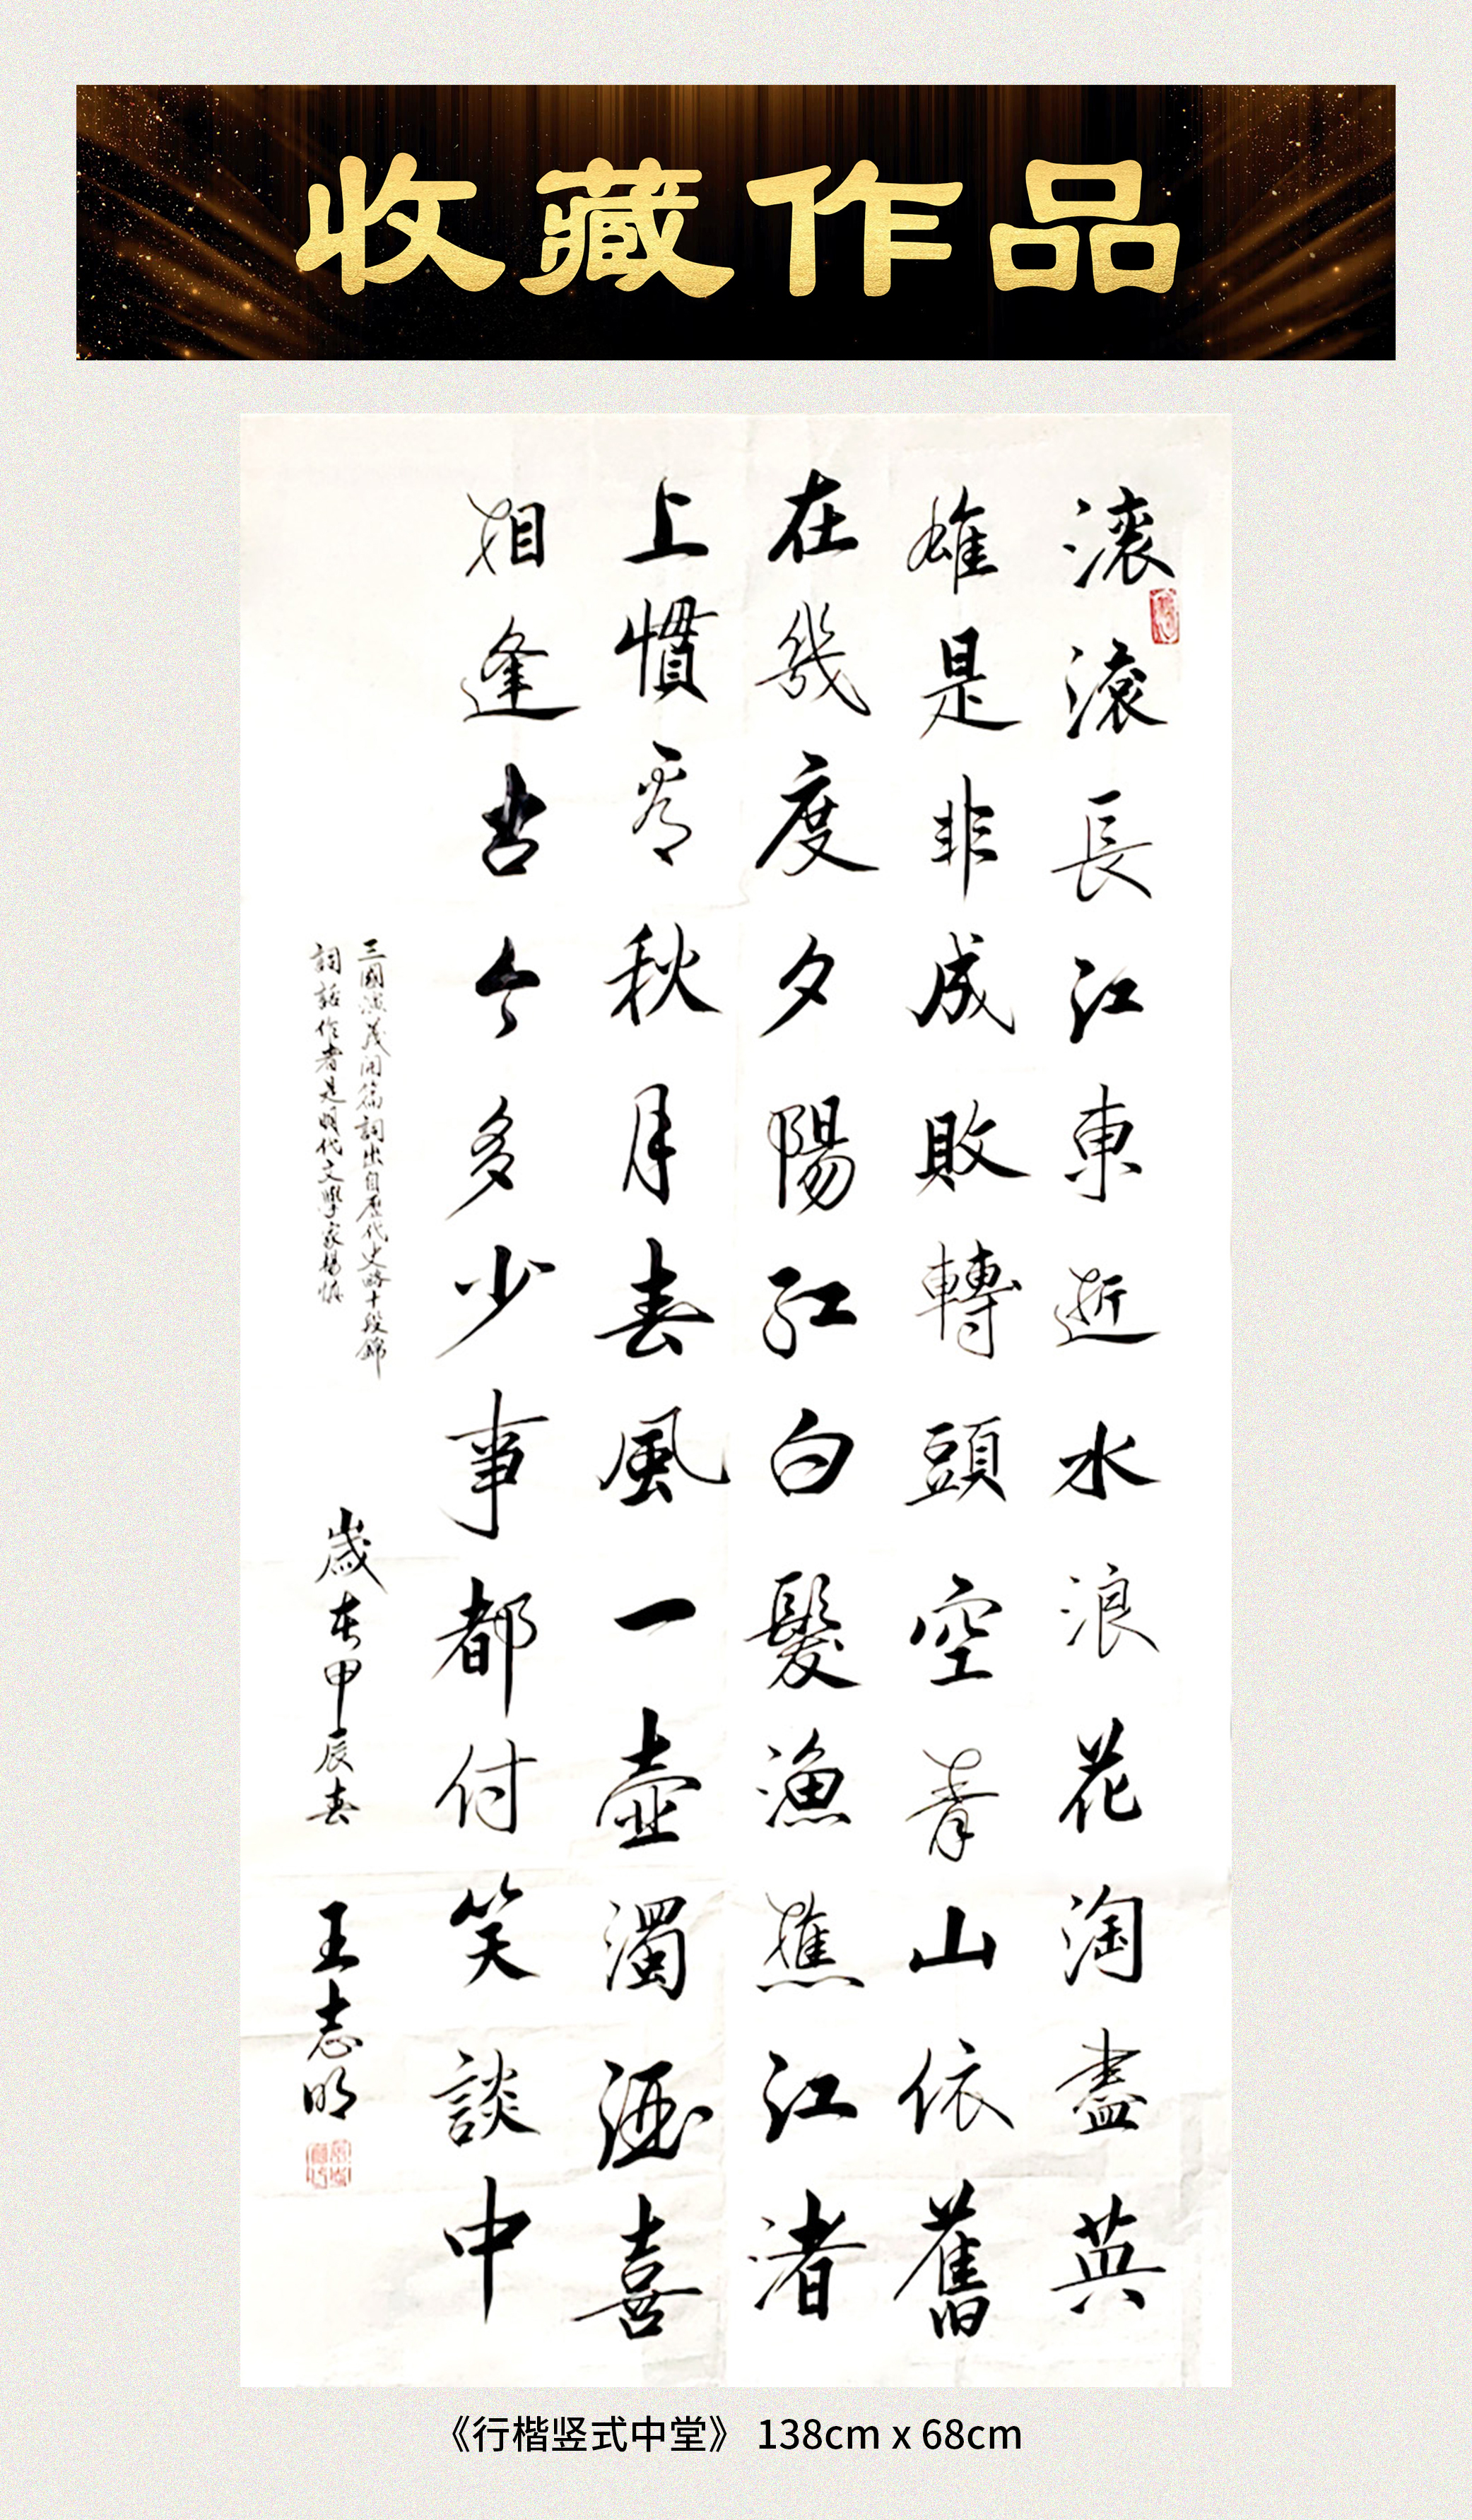 收藏作品
滚滚長江東逝水浪花淘盡英
雄是非成敗轉頭空青山依舊
在幾度夕陽紅白髮漁樵江渚
上慣看秋月春風一壺濁酒喜
相逢古今多少事都付笑談中
三國演義開篇詞出自歷代史略十段錦
詞話作者是明代文學家楊慎
歲在甲辰春
王志明
《行楷竖式中堂》 138cm x 68cm